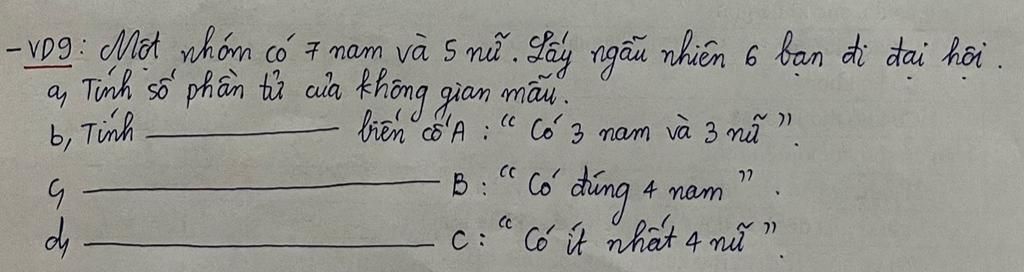 - VD9: Một nhóm có 7 nam và 5 nữ. Lấy ngẫu nhiên 6 bạn đi đại hội.
a, Tính số phần tử của không gian mẫu.
b, Tính ——— biến cố A: "Có 3 nam và 3 nữ".
c, ——— B: "Có đúng 4 nam".
d, ——— C: "Có ít nhất 4 nữ".